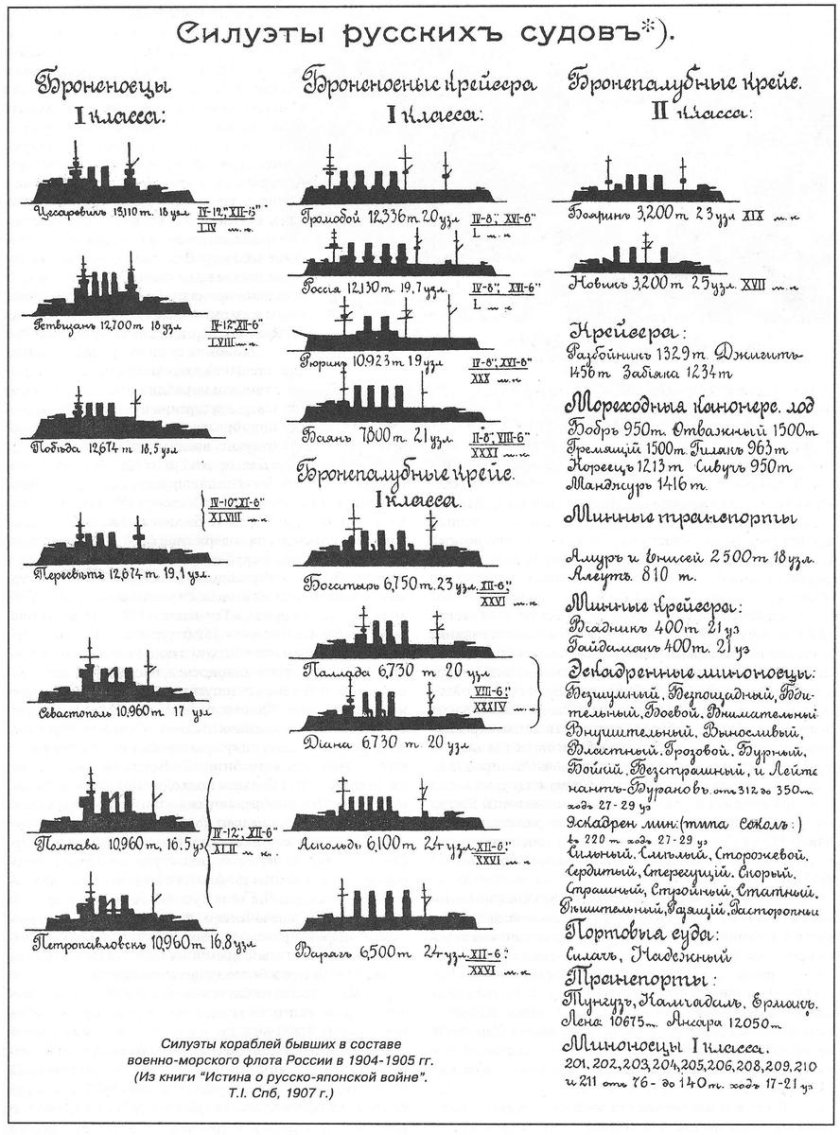 Силуэты русскихъ судовъ*).
Броненосцы
I класса:
Цесаревичъ 13,110 т. 18 узл.
IV-12", XII-6"
LIV м. к.
Ретвизанъ 12,700 т 18 узл
IV-12", XII-6"
LVIII м. к.
Побѣда 12,674 т 18,5 узл
IV-10", XI-6"
XLVIII м. к.
Пересвѣтъ 12,674 т. 19,1 узл.
Севастополь 10,960 т 17 узл
Полтава 10,960 т, 16.5 уз
IV-12", XII-6"
XLII м к.
Петропавловскъ 10,960 т 16,8 узл
Броненосные крейсера
I класса:
Громобой 12,336 т. 20 узл
IV-8", XVI-6"
L м. к
Россія 12,130 т. 19,7 узл.
IV-8", XVI-6"
L м. к
Рюрикъ 10,923 т 19 узл
IV-8", XVI-6"
XXX м. к
Баянъ 7,800 т. 21 узл
II-8", VIII-6"
XXXI м. к.
Бронепалубные крейс.
I класса.
Богатырь 6,750 т. 23 узл.
XII-6",
XXVI м. к.
Паллада 6,730 т 20 узл
VIII-6",
XXXIV м. к.
Діана 6,730 т. 20 узл
Аскольдъ 6,100 т 24 узл.
XII-6"
XXVI м. к.
Варягъ 6,500 т 24 узл.
XII-6"
XXVI м. к.
Бронепалубные крейс.
II класса:
Бояринъ 3,200 т 23 узл XIX м. к
Новикъ 3,200 т 25 узл. XVII м. к
Крейсера:
Разбойникъ 1329 т Джигитъ
1456 т Забіяка 1234 т
Мореходныя канонерс. лод
Бобръ 950 т. Отважный 1500 т
Гремящій 1500 т. Гилякъ 963 т
Кореецъ 1213 т Сивучъ 950 т
Манджуръ 1416 т.
Минные транспорты
Амуръ и Енисей 2500 т 18 узл.
Алеутъ 810 т.
Минные крейсера:
Всадникъ 400 т 21 уз
Гайдамакъ 400 т. 21 уз
Эскадренные миноносцы:
Безшумный, Безпощадный, Бди-
тельный, Боевой, Внимательный
Внушительный, Выносливый,
Властный, Грозовой, Бурный,
Бойкій, Безстрашный, и Лейте
нантъ-Бураковъ. отъ 312 до 350 т.
ходъ 27-29 уз
Эскадрен мин: (типа Соколъ:)
въ 220 т ходъ 27-29 уз
Сильный, Смѣлый, Сторожевой.
Сердитый, Стерегущій. Скорый.
Страшный, Стройный, Статный.
Рѣшительный, Разящій, Расторопны
Портовыя суда:
Силачъ, Надежный
Транспорты:
Тунгузъ, Камчадалъ, Ермакъ.
Лена 10675 т. Ангара 12050 т
Миноносцы I класса.
201, 202, 203, 204, 205, 206, 208, 209, 210
и 211 отъ 76- до 140 т. ходъ 17-21 уз
Силуэты кораблей бывших в составе
военно-морского флота России в 1904-1905 гг.
(Из книги "Истина о русско-японской войне".
Т.I. Спб, 1907 г.)